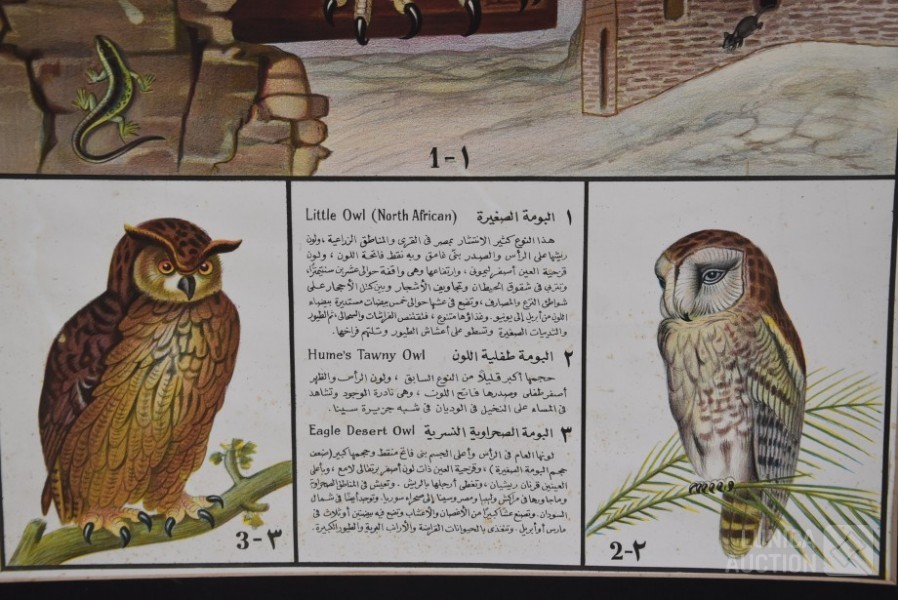 1-١
Little Owl (North African) البومة الصغيرة ١
هذا النوع كثير الانتشار بمصر فى القرى والمناطق الزراعية ، ولون
ريشها على الرأس والصدر بنى غامق وبه نقط فاتحة اللون ، ولون
قزحية العين أصفر ليمونى ، وارتفاعها وهى واقفة حوالى عشرين سنتيمترا،
وتفرخ فى شقوق الحيطان وتجاويف الأشجار وبين كتل الأحجار على
شواطئ الترع والمصارف ، وتضع فى عشها حوالى خمس بيضات مستديرة بيضاء
اللون من أبريل إلى يونيو. وغذاؤها متنوع ، فتقتنص الفراشات والسحالى ثم الطيور
والثدييات الصغيرة وتسطو على أعشاش الطيور وتلتهم فراخها.
Hume's Tawny Owl البومة طفلية اللون ٢
حجمها أكبر قليلاً من النوع السابق ، ولون الرأس والظهر
أصفر طفلى وصدرها فاتح اللون ، وهى نادرة الوجود وتشاهد
فى المساء على النخيل فى الوديان فى شبه جزيرة سينا.
Eagle Desert Owl البومة الصحراوية النسرية ٣
لونها العام فى الرأس وأعلى الجسم بنى فاتح منقط وحجمها كبير (ضعف
حجم البومة الصغيرة) ، وقزحية العين ذات لون أصفر برتقالى لامع ، وبأعلى
العينين قرنان ريشيان ، وتغطى أرجلها بالريش . وتعيش فى المناطق الصحراوية
وماجاورها فى مراكش وليبيا ومصر وسينا إلى صحراء سوريا. وتوجد أيضا فى شمال
السودان. وتصنع عشا كبيرا من الأغصان والأعشاب وتضع فيه بيضتين أو ثلاث فى
مارس أو أبريل . وتتغذى بالحيوانات القارضة والأرانب البرية والطيور الكبيرة.
3-٣
2-٢
AUCTION